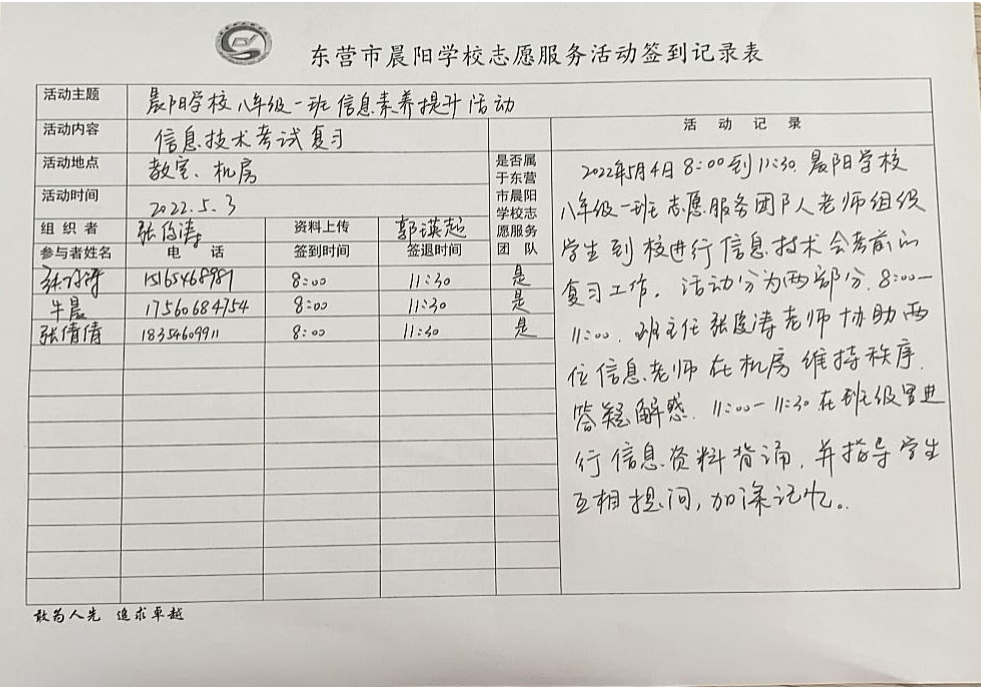 东营市晨阳学校志愿服务活动签到记录表
活动主题 晨阳学校八年级一班信息素养提升活动
活动内容 信息技术考试复习
活动地点 教室、机房
活动时间 2022.5.3
组织者 张俊涛 资料上传 郭瑛超
参与者姓名 电话 签到时间 签退时间
是否属
于东营
市晨阳
学校志
愿服务
团队
15165468981 8:00 11:30 是
牛晨 17560684754 8:00 11:30 是
张倩倩 18354609911 8:00 11:30 是
活动记录
2022年5月4日8:00到11:30晨阳学校
八年级一班志愿服务团队人老师组织
学生到校进行信息技术会考前的
复习工作。活动分为两部分,8:00—
11:00,班主任张俊涛老师协助两
位信息老师在机房维持秩序,
答疑解惑,11:00—11:30在班级里进
行信息资料背诵,并指导学生
互相提问,加深记忆。
敢为人先 追求卓越